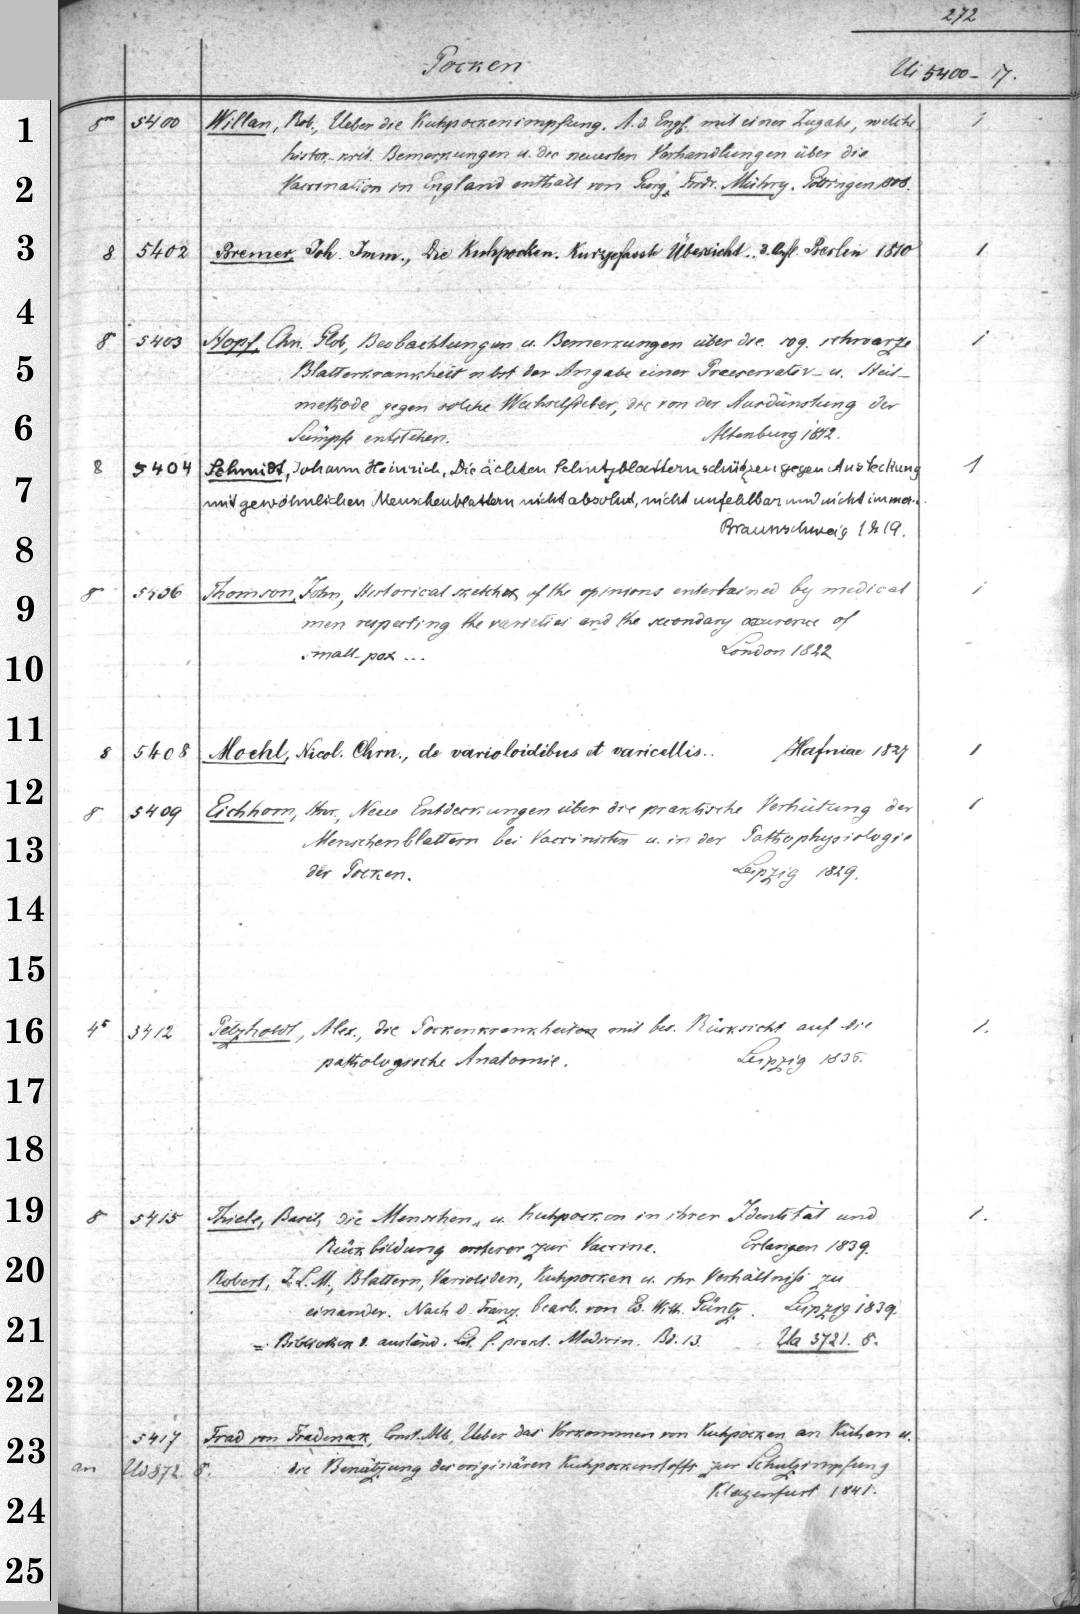 272
Pocken Ui 5400-17.
1
8° 5400 Willan, Rob., Ueber die Kuhpockenimpfung. A. d. Engl. mit einer Zugabe, welche 1
histor.-krit. Bemerkungen u. die neuesten Verhandlungen über die
2 Vaccination in England enthält von Georg Frdr. Mühry. Göttingen 808.
3 8 5402 Bremer, Joh. Imm., Die Kuhpocken. Kurzgefasste Übersicht.. 3. Aufl. Berlin 1810 1
4
8 5403 Hopf, Chn. Glob, Beobachtungen u. Bemerkungen über die sog. schwarze 1
5 Blatterkrankheit nebst der Angabe einer Praeservativ- u. Heil-
methode gegen solche Wechselfieber, die von der Ausdünstung der
6 Sümpfe entstehen. Altenburg 1812.
8 5404 Schmidt, Johann Heinrich, Die ächten Schutzblattern schützen gegen Ansteckung 1
7 mit gewöhnlichen Menschenblattern nicht absolut, nicht unfehlbar und nicht immer..
Braunschweig 1819.
8
9 8 5406 Thomson, John, Historical sketches of the opinions entertained by medical 1
men respecting the varieties and the secondary occurence of
10 small-pox ... London 1822
11
8 5408 Moehl, Nicol. Chrn., de varioloidibus et varicellis.. Hafniae 1827 1
12
8 5409 Eichhorn, Hnr., Neue Entdeckungen über die praktische Verhütung der 1
13 Menschenblattern bei Vaccinirten u. in der Pathophysiologie
der Pocken. Leipzig 1829.
14
15
16 4° 5412 Petzholdt, Alex., die Pockenkrankheiten mit bes. Rücksicht auf die 1.
pathologische Anatomie. Leipzig 1836.
17
18
19 8 5415 Thiele, Basil, die Menschen- u. Kuhpocken in ihrer Identität und 1.
Rückbildung ersterer zur Vaccine. Erlangen 1839.
20 Robert, J. L. M., Blattern, Varioliden, Kuhpocken u. ihr Verhältniss zu
einander. Nach d. Franz. bearb. von Ed. Wilh. Güntz. Leipzig 1839
21 = Bibliothek d. ausländ. Lit. f. prakt. Medicin. Bd. 13. Ua 5721. 8.
22
5417 Frad von Fradeneck, Const. Alb, Ueber das Vorkommen von Kuhpocken an Kühen u.
23 an Ud 872. 8. die Benützung des originären Kuhpockenstoffs zur Schutzimpfung
Klagenfurt 1841.
24
25